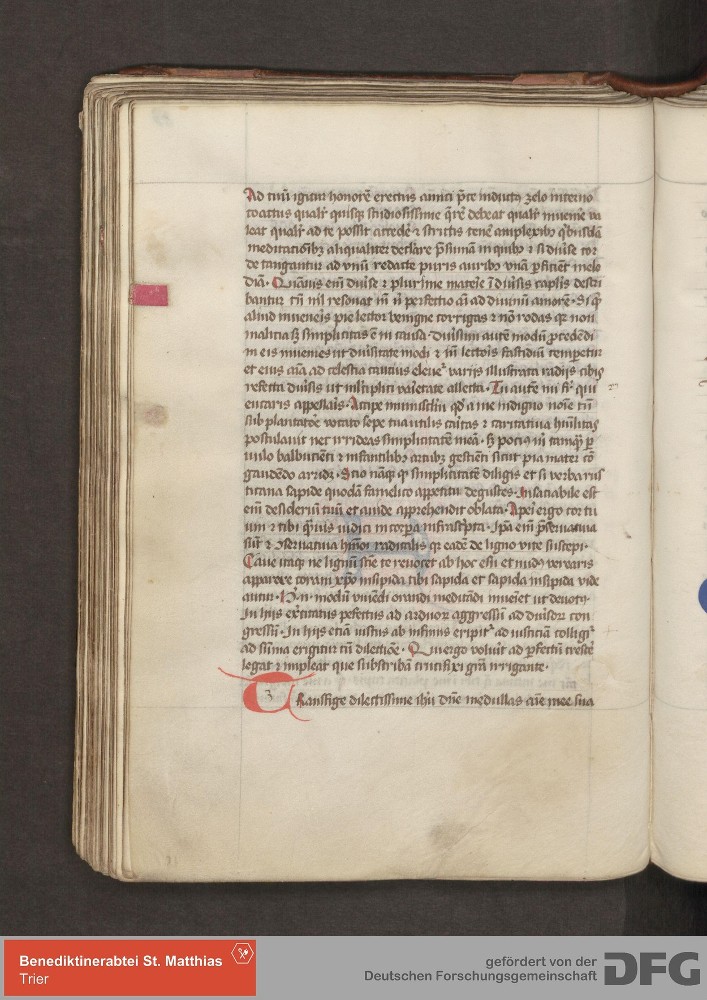 Ad tuū igitur honorē erectus amici p̄te inductꝯ zelo interno
coactus qualr̄ quisqꝫ studiosissime q̄rē debeat qualr̄ inuenire va
leat qualr̄ ad te possit accedē ⁊ strictis tenē amplexibꝫ qͥbusdā
meditacōibꝫ aliqualiter declare p̄sūmā in quibꝫ ⁊ si diūse cor
de tangantur ad vnū redacte puris auribꝫ vnā ꝑficiēt melo
diā. Quāuis em̄ diūse ⁊ plurīme mateīe ī diūsis cap̄lis descri
bantur tn̄ nil resonāt in ꝑfectio ad diuinū amorē. Si qͥ
aliud inueneris pie lector benigne corrigas ⁊ nō rodas qꝛ non
malicia sꝫ simplicitas ē in causa. Diuisim autē modū ꝓcedēdi
in eis inuenies ut diūsitate modi lectoīs fastidiū temperetur
et eius aīa ad celestia cautius eleuet᷑ variis illustrata radiis cibis
refecta diūsis ut multiplici vaīetate allecta. Tu autē mi fr̄ qui
encaris appellaīs. Accipe munusclm̄ qd̓ a me indigno noīe tn̄
sub plantatōe vocato sepe tua utilis cāritas ⁊ caritatiua hūilitas
postulauit nec irrideas simplicitatē meā. sꝫ pociꝯ m̄ tamqͣꝫ ꝑ
uulo balbucienti ⁊ infantilibꝫ actibꝫ gestienti sicut pia mater cō
gaudēdo arride. Scio nāqꝫ qꝫ simplicitatē diligis et si verba rus
ticana sapide quodā famelico appetitu degustes. Insaciabile est
em̄ desideriū tuū et auide apprehendit oblata. Aperi ergo cor tu
um ⁊ tibi qͥuis iudici incorpa infrasc̄pta. Ip̄a em̄ p̄seruatiua
sūt ⁊ ɔseruatiua hmōi radicalis qꝛ eadē de ligno vite suscepi.
Caue itaqꝫ ne lignū scīe te reuocet ab hoc esu et nudꝯ verearis
apparere coram xp̄o insipida tibi sapida et sapida insipida vide
antur. modū viuēdi orandi meditādi inueniet ut deuotꝯ.
In hiis excitatus ꝑfectus ad arduoꝝ aggressū ad diuisoꝝ con
gressū. In hiis etiā iustus ab infimis eripit᷑ ad iusticiā colligit᷑
ad sūma erigitur cū dilectiōe. Qui ergo voluit ad ꝓfectū crescē
legat ⁊ impleat que subscribā crucifixi grā irrigante.
3 Transfige dilectissime ihū dn̄e medullas aīe mee sua
Benediktinerabtei St. Matthias
Trier
gefördert von der
Deutschen Forschungsgemeinschaft
DFG